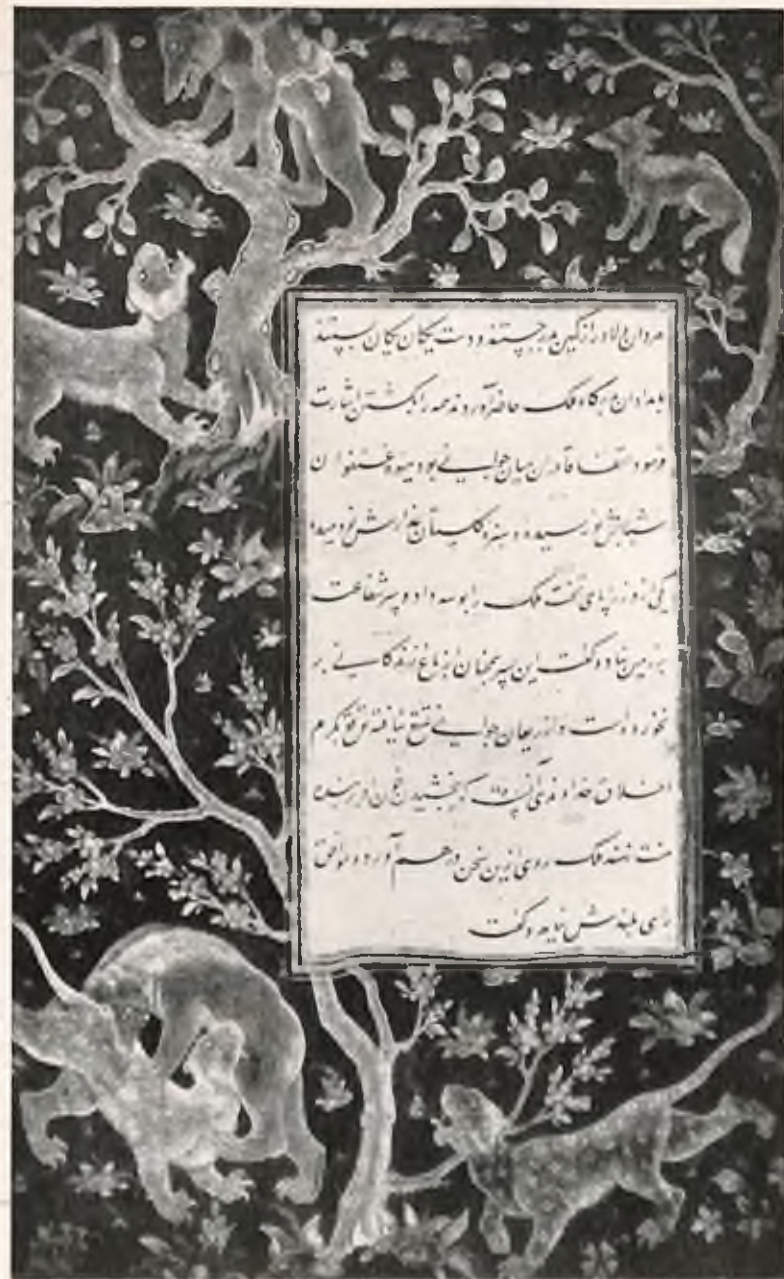 مردان دلاور از کمین بدر جستند و دست یکان یکان ببستند
بامدادان بدرگاه ملک حاضر آوردند همه را بکشتن اشارت
فرمود اتفاقا در ان میان جوانی بود میوه عنفوان
شبابش نو رسیده و سبزه گلستان عذارش نو دمیده
یکی از وزرا پای تخت ملک را بوسه داد و سر شفاعت
بر زمین نهاد و گفت این پسر همچنان از باغ زندگانی بر
نخورده است و از ریعان جوانی تمتع نیافته توقع بکرم
اخلاق خداوندی که ببخشیدن خون او بر بنده
منت نهند ملک روی ازین سخن در هم آورد و موافق
رای بلندش نیامد و گفت